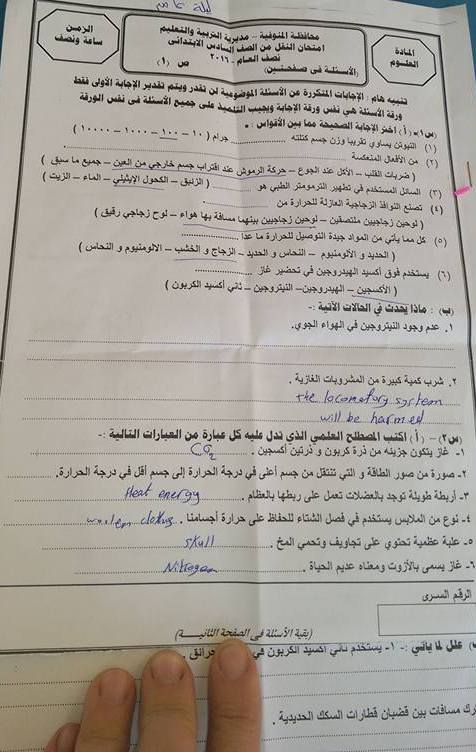 ليلة
محافظة المنوفية – مديرية التربية والتعليم
امتحان النقل من الصف السادس الابتدائى
نصف العام – ٢٠١٦
(الأسئلة فى صفحتين) ص (١)
المادة
العلوم
الزمن
ساعة ونصف
تنبيه هام : الإجابات المتكررة عن الأسئلة الموضوعية لن تقدر ويتم تقدير الإجابة الأولى فقط
ورقة الأسئلة هي نفس ورقة الإجابة ويجيب التلميذ على جميع الأسئلة فى نفس الورقة
س١- (أ) اختر الإجابة الصحيحة مما بين الأقواس :
(١) النيوتن يساوي تقريبا وزن جسم كتلته ........ جرام ( ١٠ – ١٠٠ – ١٠٠٠ – ١٠٠٠٠ )
(٢) من الأفعال المنعكسة ........
( ضربات القلب – الأكل عند الجوع – حركة الرموش عند اقتراب جسم خارجي من العين – جميع ما سبق )
(٣) السائل المستخدم في تطهير الترمومتر الطبي هو ........ ( الزئبق – الكحول الإيثيلي – الماء – الزيت )
(٤) تصنع النوافذ الزجاجية العازلة للحرارة من ........
( لوحين زجاجيين ملتصقين – لوحين زجاجيين بينهما مسافة بها هواء – لوح زجاجي رقيق )
(٥) كل مما يأتي من المواد جيدة التوصيل للحرارة ما عدا ........
( الحديد و الألومنيوم – النحاس و الحديد – الزجاج و الخشب – الالومنيوم و النحاس )
(٦) يستخدم فوق أكسيد الهيدروجين في تحضير غاز ........
( الأكسجين – الهيدروجين – النيتروجين – ثاني أكسيد الكربون )
(ب) : ماذا يحدث في الحالات الآتية :-
١. عدم وجود النيتروجين في الهواء الجوي.
٢. شرب كمية كبيرة من المشروبات الغازية .
the locomotory system
will be harmed
(س٢) – (أ) اكتب المصطلح العلمي الذي تدل عليه كل عبارة من العبارات التالية :-
١- غاز يتكون جزيئه من ذرة كربون و ذرتين أكسجين . CO2
٢- صورة من صور الطاقة و التي تنتقل من جسم أعلى في درجة الحرارة إلى جسم أقل في درجة الحرارة.
Heat energy
٣- أربطة طويلة توجد بالعضلات تعمل على ربطها بالعظام.
٤- نوع من الملابس يستخدم في فصل الشتاء للحفاظ على حرارة أجسامنا .
٥- علبة عظمية تحتوي على تجاويف وتحمي المخ . skull
٦- غاز يسمى بالأزوت ومعناه عديم الحياة . Nitrogen
الرقم السرى
(بقية الأسئلة فى الصفحة الثانيـــة)
علل لما يأتي :- ١- يستخدم ثاني أكسيد الكربون في
مسافات بين قضبان قطارات السكك الحديدية .